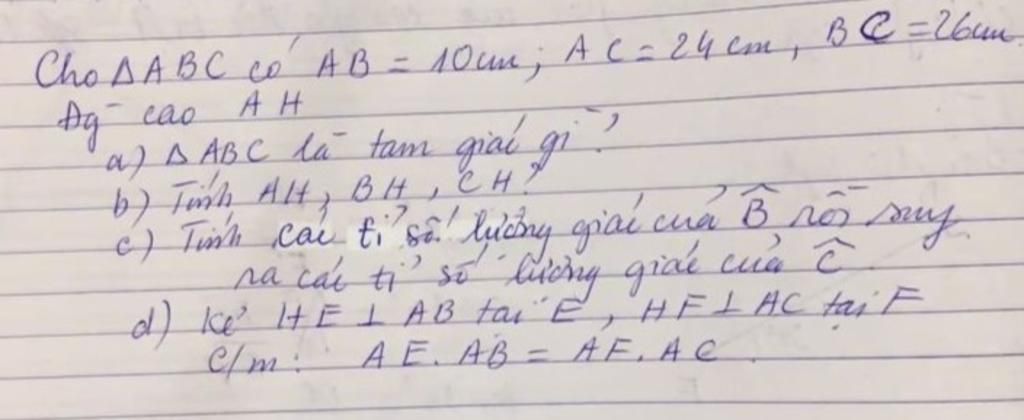 Cho ΔABC có AB = 10cm; AC = 24cm, BC = 26cm.
Đg̀ cao AH
a) ΔABC là tam giác gì?
b) Tính AH, BH, CH?
c) Tính các tỉ số lượng giác của B̂ rồi suy
ra các tỉ số lượng giác của Ĉ
d) Kẻ HE ⊥ AB tại E, HF ⊥ AC tại F
C/m: AE. AB = AF. AC